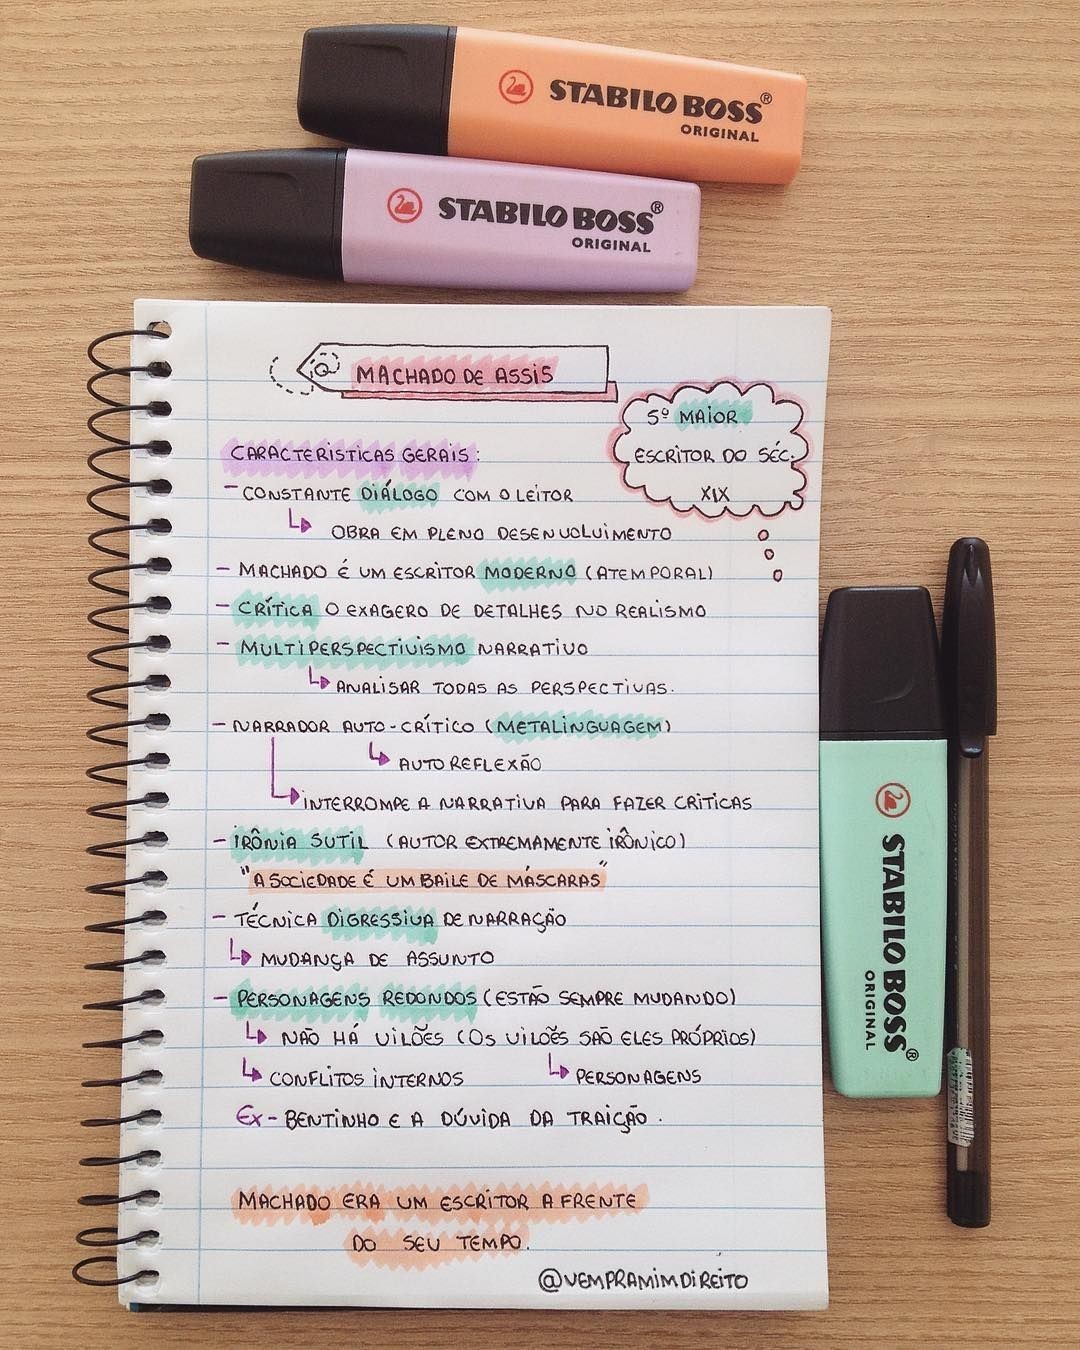 STABILO BOSS®
ORIGINAL
STABILO BOSS®
ORIGINAL
MACHADO DE ASSIS
5º MAIOR
ESCRITOR DO SÉC.
XIX
CARACTERISTICAS GERAIS:
- CONSTANTE DIÁLOGO COM O LEITOR
OBRA EM PLENO DESENVOLVIMENTO
- MACHADO É UM ESCRITOR MODERNO (ATEMPORAL)
- CRÍTICA O EXAGERO DE DETALHES NO REALISMO
- MULTIPERSPECTIVISMO NARRATIVO
ANALISAR TODAS AS PERSPECTIVAS.
- NARRADOR AUTO-CRÍTICO (METALINGUAGEM)
AUTO REFLEXÃO
INTERROMPE A NARRATIVA PARA FAZER CRITICAS
- IRÔNIA SUTIL (AUTOR EXTREMAMENTE IRÔNICO)
"A SOCIEDADE É UM BAILE DE MÁSCARAS"
- TÉCNICA DIGRESSIVA DE NARRAÇÃO
MUDANÇA DE ASSUNTO
- PERSONAGENS REDONDOS (ESTÃO SEMPRE MUDANDO)
NÃO HÁ VILÕES (OS VILÕES SÃO ELES PRÓPRIOS)
CONFLITOS INTERNOS
PERSONAGENS
EX- BENTINHO E A DÚVIDA DA TRAIÇÃO.
MACHADO ERA UM ESCRITOR A FRENTE
DO SEU TEMPO.
@VEMPRAMIMDIREITO
STABILO BOSS®
ORIGINAL